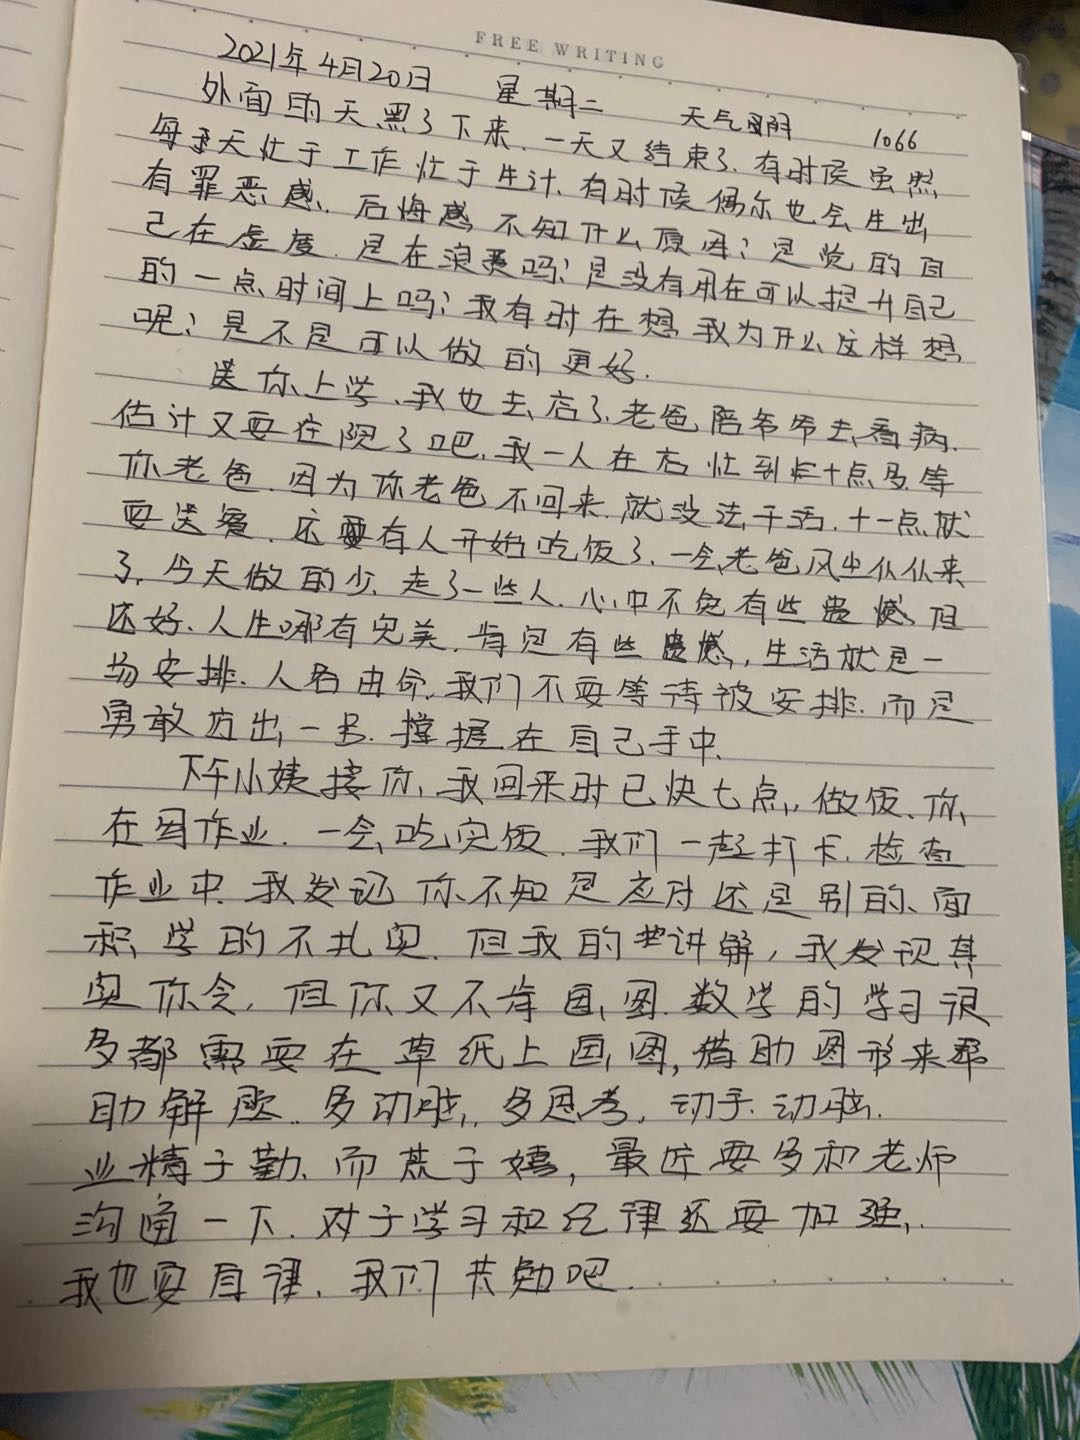 FREE WRITING
2021年4月20日 星期二 天气阴 1066
外面的天黑了下来.一天又结束了.有时候虽然
每天忙于工作忙于生计.有时候偶尔也会生出
有罪恶感、后悔感.不知什么原因?是觉的自
己在虚度.是在浪费吗?是没有用在可以提升自己
的一点时间上吗?我有时在想.我为什么这样想
呢?是不是可以做的更好.
送你上学、我也去店了.老爸陪爷爷去看病.
估计又要住院了吧.我一人在店忙到十点多.等
你老爸.因为你老爸不回来.就没法干活.十一点就
要送餐.还要有人开始吃饭了.一会老爸风尘仆仆来
了.今天做的少.走了一些人.心中不免有些遗憾.但
还好.人生哪有完美.肯定有些遗憾,生活就是一
场安排.人各由命.我们不要等待被安排.而是
勇敢迈出一步.掌握在自己手中.
下午小姨接你,我回来时已快七点,做饭、你
在写作业.一会吃完饭.我们一起打卡.检查
作业中.我发现你不知是应付还是别的、面
积学的不扎实.但我的讲解,我发现其
实你会,但你又不肯画图.数学的学习很
多都需要在草纸上画图,借助图形来帮
助解题.多动脑,多思考,动手.动脑.
业精于勤、而荒于嬉,最近要多和老师
沟通一下.对于学习和纪律还要加强,
我也要自律、我们共勉吧.